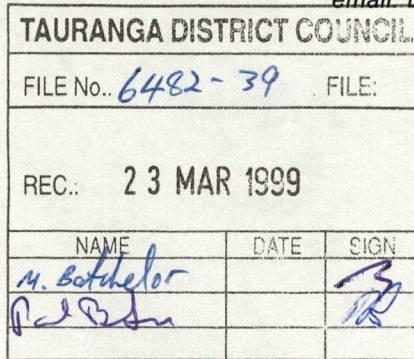 email:
TAURANGA DISTRICT COUNCIL
FILE No.. 6482-39 FILE:
REC.: 23 MAR 1999
NAME DATE SIGN
M. Batchelor